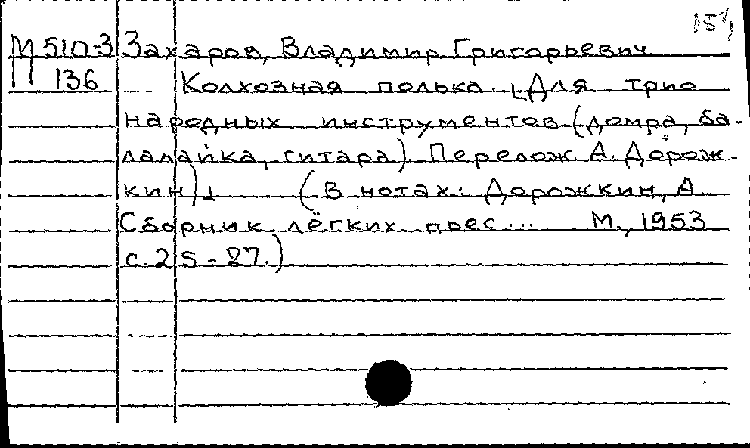 М 510-3 Захаров, Владимир Григорьевич
П 136 Колхозная полька. [Для трио
народных инструментов (домра, ба-
лалайка, гитара). Перелож. А. Дорож-
кин] (В нотах: Дорожкин, А.
Сборник лёгких пьес... М., 1953
с. 25-27.)